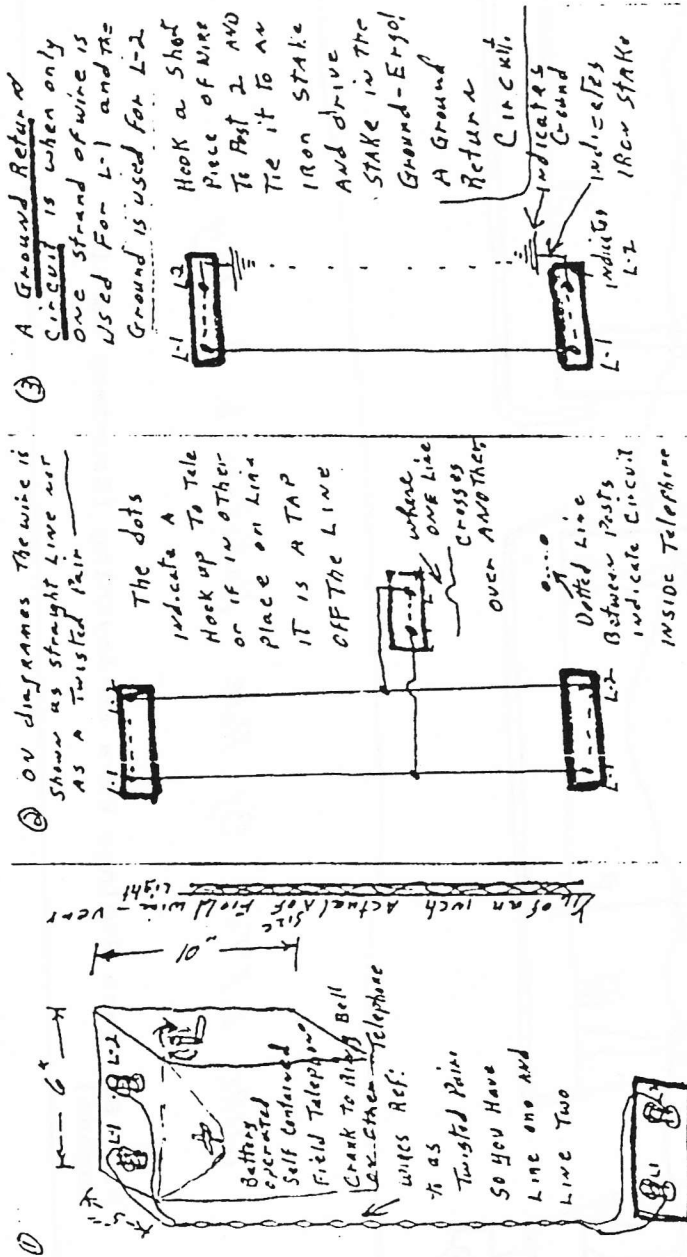 ①
6"
10"
5"
L-1
L-2
Battery
operated
Self Contained
Field Telephone
Crank To Ring Bell
Other Telephone
Wires Ref:
To as
Twisted Pair:
So you Have
Line one And
Line Two
L1
L2
1/16 of an inch Actual Size of Field wire - very Light
② ON diagrames The wire is
shown as straight Line not
AS A Twisted Pair
L-1
L-2
The dots
indicate A
Hook up To Tele
or if in other
place on Line
IT is A TAP
OFF The LINE
where
ONE Line
crosses
over ANother
Dotted Line
Between Posts
indicate Circuit
INSIDE Telephone
L-1
L-2
③ A Ground Return
Circuit is when only
ONE Strand of wire is
Used For L-1 and The
Ground is used for L-2
L-1
L2
Hook a Short
Piece of Wire
To Post 2 AND
Tie it to AN
IRON STAKE
AND drive
STAKE in The
Ground-Ergo!
A Ground
Return
Circuit.
indicates
Ground
indicates
IRON STAKE
L-1
indicates
L-2